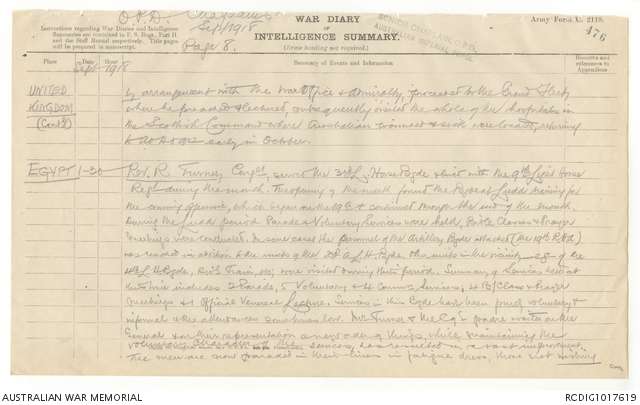 O.P.D. Chaplains
Sept 1918
Page 8.
WAR DIARY
or
INTELLIGENCE SUMMARY.
(Erase heading not required).
Instructions regarding War Diaries and Intelligence
Summaries are contained in F. S. Regs., Part II.
and the Staff Manual respectively. Title pages
will be prepared in manuscript.
Army Form C. 2118.
176
Place
Date
Hour
Summary of Events and Information
Remarks and
references to
Appendices
Sept 1918
UNITED
KINGDOM
(Contd)
by arrangement with the War Office & Admiralty, proceeded to the Grand Fleet,
where he preached & lectured, subsequently visited the whole of the hospitals in
the Scottish Command where Australian wounded & sick were located, returning
to early in October.
EGYPT 1-30
Rev. R. Turner, served the 3rd L. Horse Bgde & lived with the 9th Light Horse
Regt during the month. The opening of the month found the Bgde at Ludd training for
the coming operations, which began on the 19th & continued through the end of the month.
During the Ludd period Parade & Voluntary Services were held, Bible Classes & Prayer
Meetings were conducted. In some cases the personnel of the Artillery Bgde attached (the 19th R.H.A.)
was reached in addition to the units of the 3rd A.L.H. Bgde. Other units in the vicinity - e.g. of the
4th L.H. Bgde, Div'l Train, etc; were visited during this period. Summary of Services held at
this time includes 2 Parade, 5 Voluntary & 4 Commn Services, 4 B/Class & Prayer
Meetings & 1 Official General Lecture. Services in this Bgde have been purely voluntary &
informal & the attendances sometimes low. Mr Turner & the C/E padre waited on the
General & on their representation a new order of things, while maintaining the
voluntary character of the services, has resulted in a vast improvement.
The men are now paraded in their lines in fatigue dress, those not wishing
AUSTRALIAN WAR MEMORIAL
RCDIG1017619